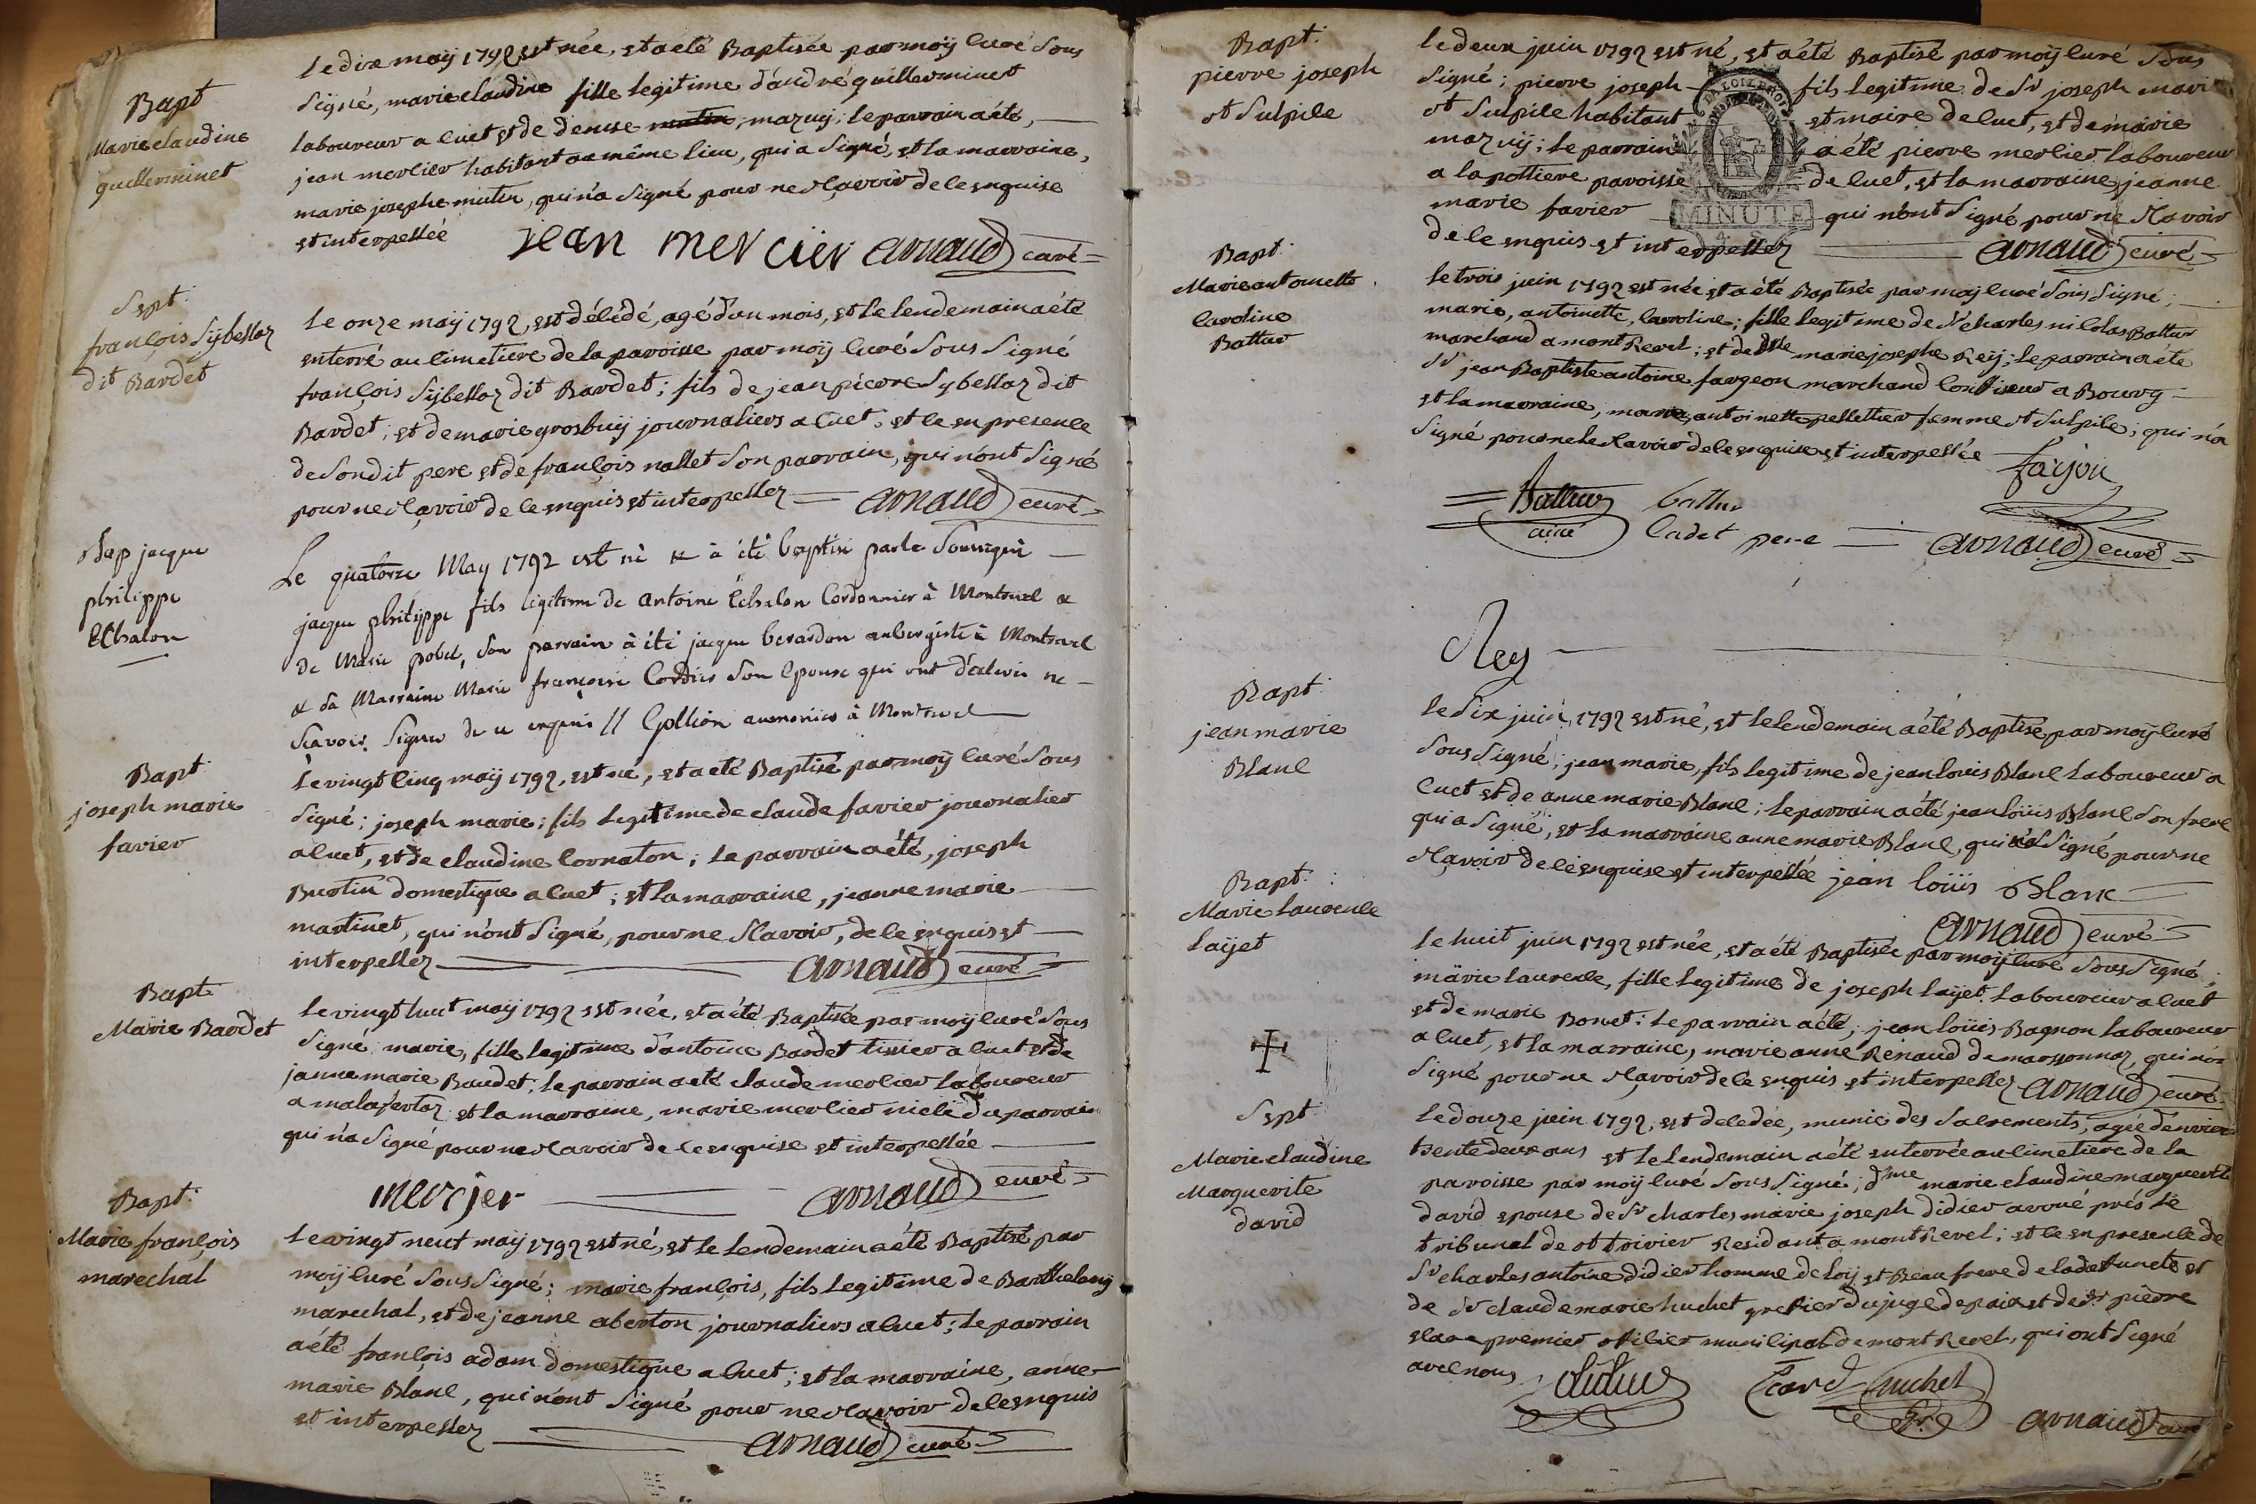 Bapt
Marie claudine
guillerminet
le dix maÿ 1792 est née, et a été Baptisée par moÿ curé sous
signé, marie claudine fille legitime d'andré guillerminet
laboureur a cuet et de denise mazuÿ; le parrain a été,
jean mercier habitant au même lieu, qui a signé, et la marraine,
marie josephe mutin, qui n'a signé pour ne sçavoir de ce enquise
et interpellée jean mercier arnaud curé
Sept
françois Sÿbellaz
dit Bardet
le onze maÿ 1792, est décédé, agé d'un mois, et le lendemain a été
enterré au cimetiere de la paroisse par moÿ curé sous signé
françois Sÿbellaz dit Bardet; fils de jean pierre Sybellaz dit
Bardet; et de marie grosbuÿ journaliers a Cuet; et ce en presence
de son dit pere et de françois nallet son parrain, qui n'ont signé
pour ne sçavoir de ce enquis et interpellez arnaud curé
Bap jacque
philippe
Echalon
Le quatorze May 1792 est né & à été baptisé par le soussigné
jacque philippe fils légitime de antoine Echalon Cordonnier à Montrevel &
de Marie pobel, son parrain à été jacque berardan aubergiste à Montrevel
& sa Marraine Marie françoise Cordier son Epouse qui ont déclaré ne
scavoir signer de ce enquis // Gollion aumonier à Montrevel
Bapt
joseph marie
favier
le vingt cinq maÿ 1792, est né, et a été Baptisé par moÿ curé sous
signé; joseph marie; fils legitime de claude favier journalier
a cuet, et de claudine Cornaton; le parrain a été, joseph
Buotin domestique a cuet; et la marraine, jeanne marie
martinet, qui n'ont signé, pour ne sçavoir, de ce enquis et
interpellez arnaud curé
Bapt
Marie Bardet
le vingt huit maÿ 1792 est née, et a été Baptisée par moÿ curé sous
signé marie, fille legitime d'antoine Bardet tissier a cuet et de
janne marie Baudet; le parrain a été claude mercier laboureur
a malafertaz et la marraine, marie mercier niece du parrain
qui n'a signé pour ne sçavoir de ce enquise et interpellée
mercjer arnaud curé
Bapt
Marie françois
marechal
le vingt neuf maÿ 1792 est né, et le lendemain a été Baptisé par
moÿ curé sous signé; marie françois, fils legitime de Barthelemÿ
marechal, et de jeanne aberton journaliers a cuet; le parrain
a été françois adam domestique a cuet; et la marraine, anne
marie Blanc, qui n'ont signé pour ne sçavoir de ce enquis
et interpellez arnaud curé
Bapt
pierre joseph
st Sulpice
le deux juin 1792 est né, et a été Baptisé par moÿ curé sous
signé; pierre joseph fils legitime de Sr joseph marie
st Sulpice habitant et maire de Cuet, et de marie
mazuÿ; le parrain a été pierre mercier laboureur
a la pottiere paroisse de Cuet, et la marraine jeanne
marie favier qui n'ont signé pour ne sçavoir
de ce enquis et interpellez arnaud curé
MINUTE
Bapt
Marie antoinette
Caroline
Battur
le trois juin 1792 est née et a été Baptisée par moÿ curé sous signé;
marie, antoinette, Caroline; fille legitime de Sr charles nicolas Battur
marchand a montRevel; et de dlle marie josephe Reÿ; le parrain a été
Sr jean Baptiste antoine fargeon marchand confiseur a Bourg
et la marraine, marie, antoinette pellettier femme st Sulpice; qui n'a
signé pour ne le sçavoir de ce enquise et interpellée farjon
Battur battur
ainé Cadet pere arnaud curé
Rey
Bapt
jean marie
Blanc
le six juin, 1792 est né, et le lendemain a été Baptisé par moÿ curé
sous signé; jean marie, fils legitime de jean louis Blanc laboureur a
Cuet et de anne marie Blanc; le parrain a été jean loüis Blanc son frere
qui a signé; et la marraine anne marie Blanc, qui n'a signé pour ne
sçavoir de ce enquise et interpellée jean loüis Blanc
arnaud curé
Bapt
Marie laurence
laÿet
le huit juin 1792 est née, et a été Baptisée par moÿ curé sous signé;
marie laurence, fille legitime de joseph laÿet laboureur a cuet
et de marie Bonet; le parrain a été; jean loüis Bagnon laboureur
a Cuet, et la marraine, marie anne Renaud de marsonnaz, qui n'ont
signé pour ne sçavoir de ce enquis et interpellez arnaud curé
Sept
Marie claudine
Marguerite
david
le douze juin 1792, est decedée, munie des Sacrements, agée d'environ
trente deux ans et le lendemain a été enterrée au cimetiere de la
paroisse par moÿ curé sous signé; dme marie claudine marguerite
david epouse de Sr charles marie joseph didier avoué prés le
tribunal de st trivier Residant a montRevel; et ce en presence de
Sr charles antoine didier homme de loÿ et Beau frere de la defuncte et
de Sr claude marie huchet greffier du juge de paix et de Sr pierre
premier officier municipal de montRevel, qui ont signé
avec nous didier huchet arnaud curé